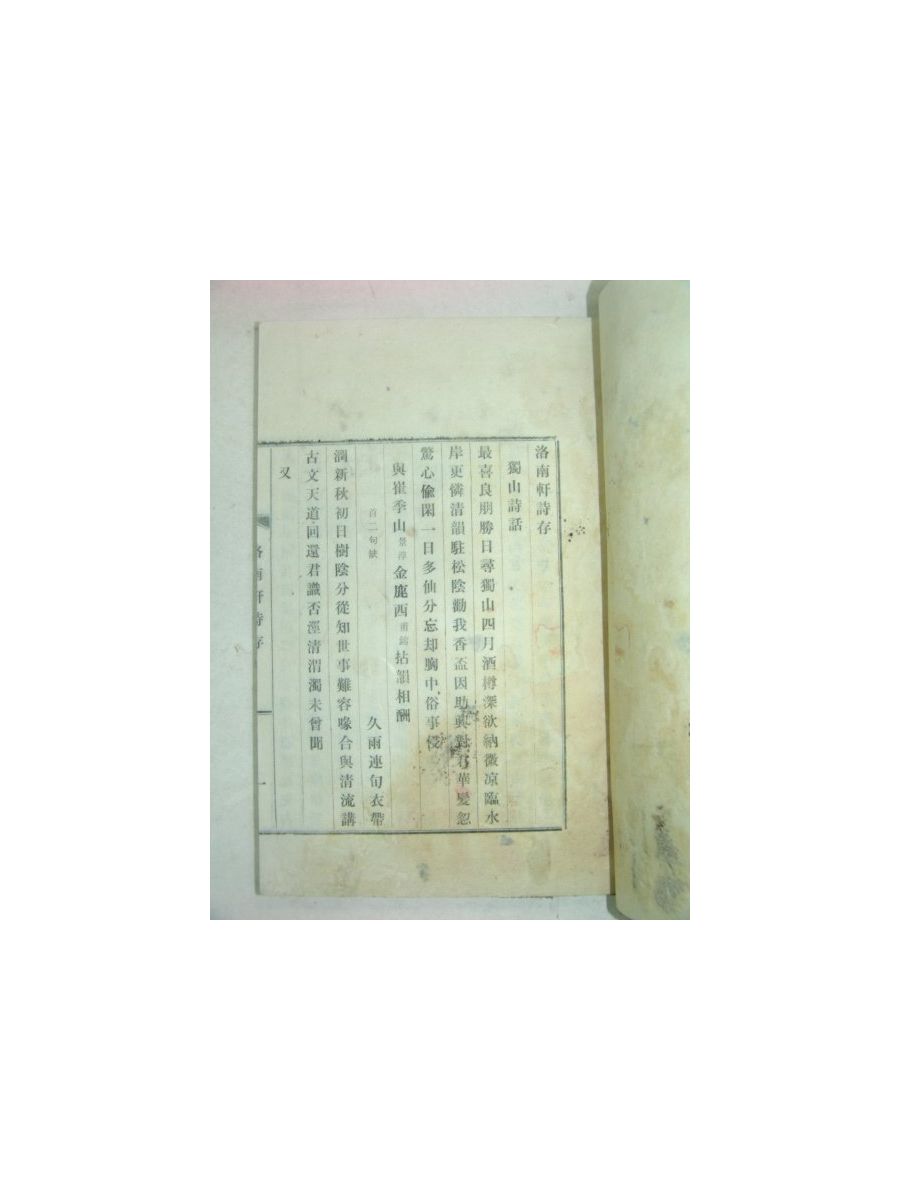 洛南軒詩存
獨山詩話
最喜良朋勝日尋獨山四月酒樽深欲納微凉臨水
岸更憐清韻駐松陰勸我香盃因助興對君華髮忽
驚心偸閑一日多仙分忘却胸中俗事侵
與崔季山景淳金鹿西拈韻相酬
首二句缺 久雨連旬衣帶
潤新秋初日樹陰分從知世事難容喙合與清流講
古文天道回還君識否涇清渭濁未曾聞
又
洛南軒詩存
一